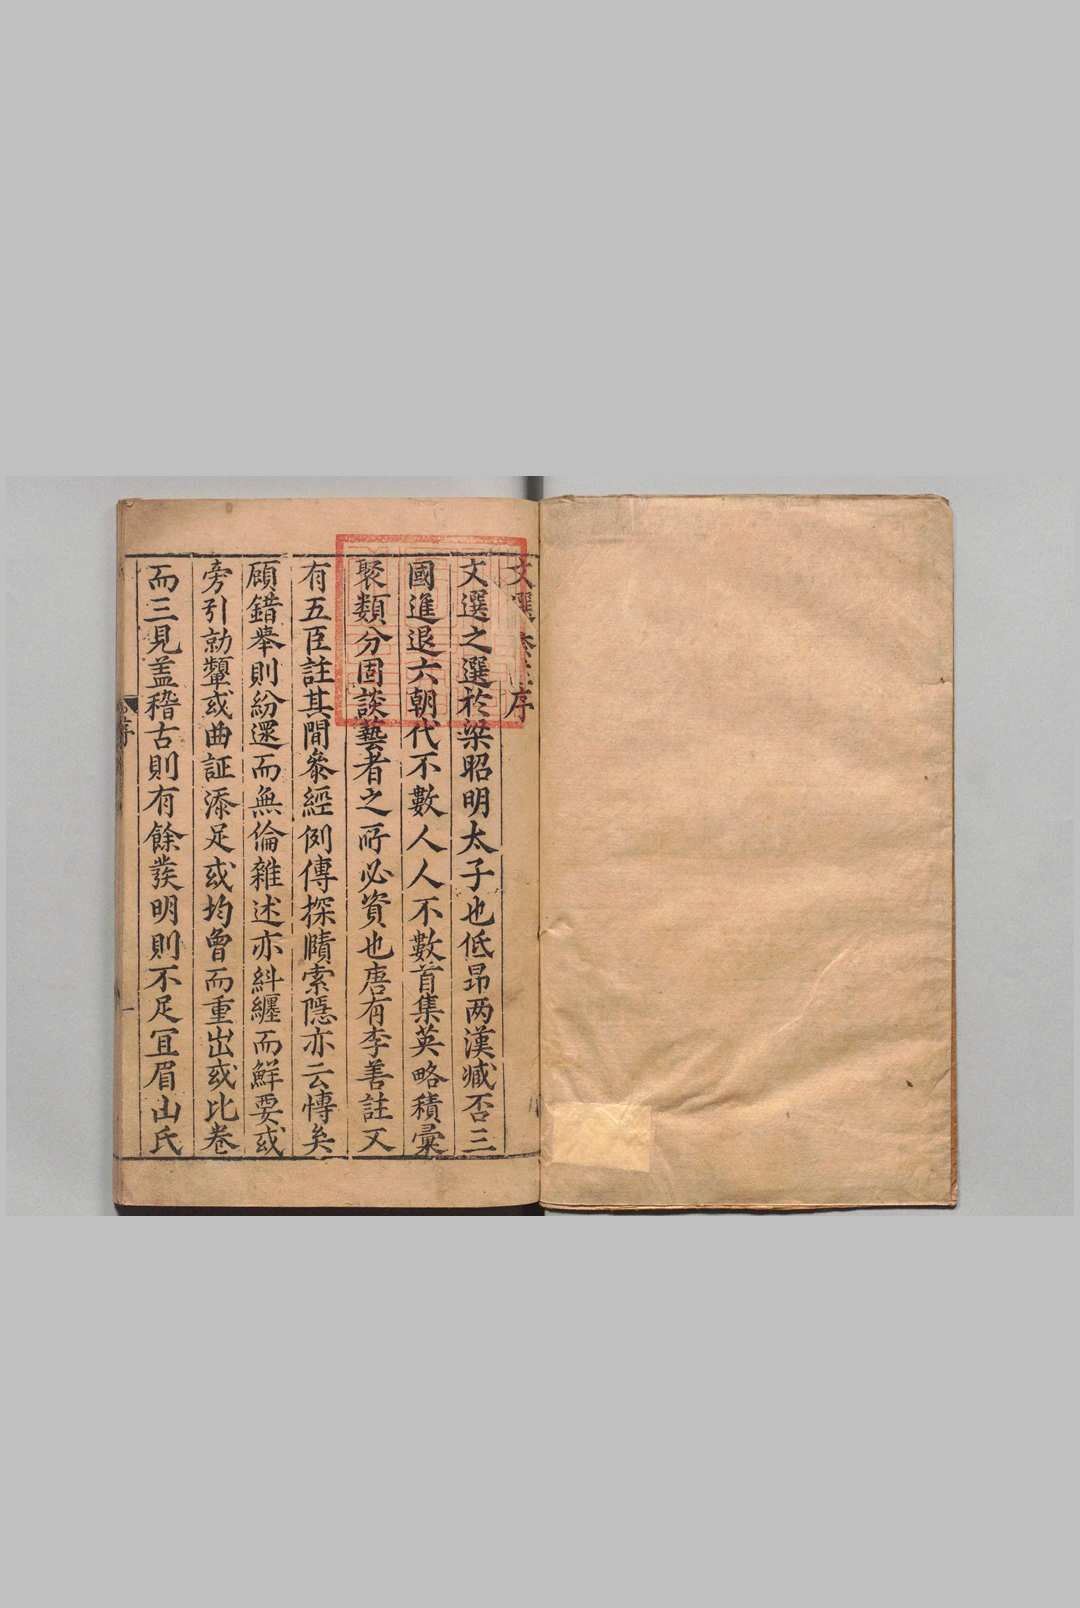 文選纂註序
文選之選於梁昭明太子也低昂两漢臧否三
國進退六朝代不數人人不數首集英略積彚
聚類分固談藝者之所必資也唐有李善註又
有五臣註其間叅經例傳探賾索隱亦云慱矣
顧錯舉則紛還而無倫雜述亦糾纒而鮮要或
旁引効顰或曲証添足或均曾而重出或比卷
而三見盖稽古則有餘發明則不足冝眉山氏
序
一